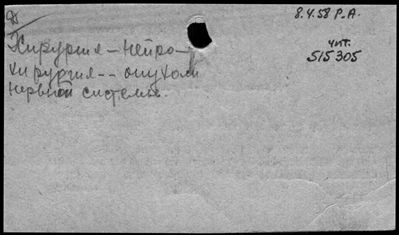 8.4.58 Р.А.
Хирургия – нейро-
хирургия -- опухоли
нервной системы.
чит.
515305